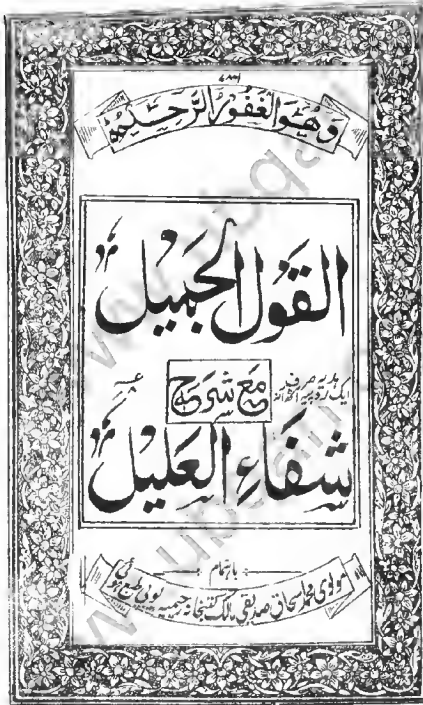 ۷۸۶
وَهُوَ الْغَفُورُ الرَّحِيمُ
القول الجميل
مع شرح
ہدیہ صرف
ایک روپیہ آٹھ آنہ
شفاء العليل
باہتمام
مولوی محمد اسحاق صدیقی مالک کتبخانہ رحیمیہ طبع ہوئی